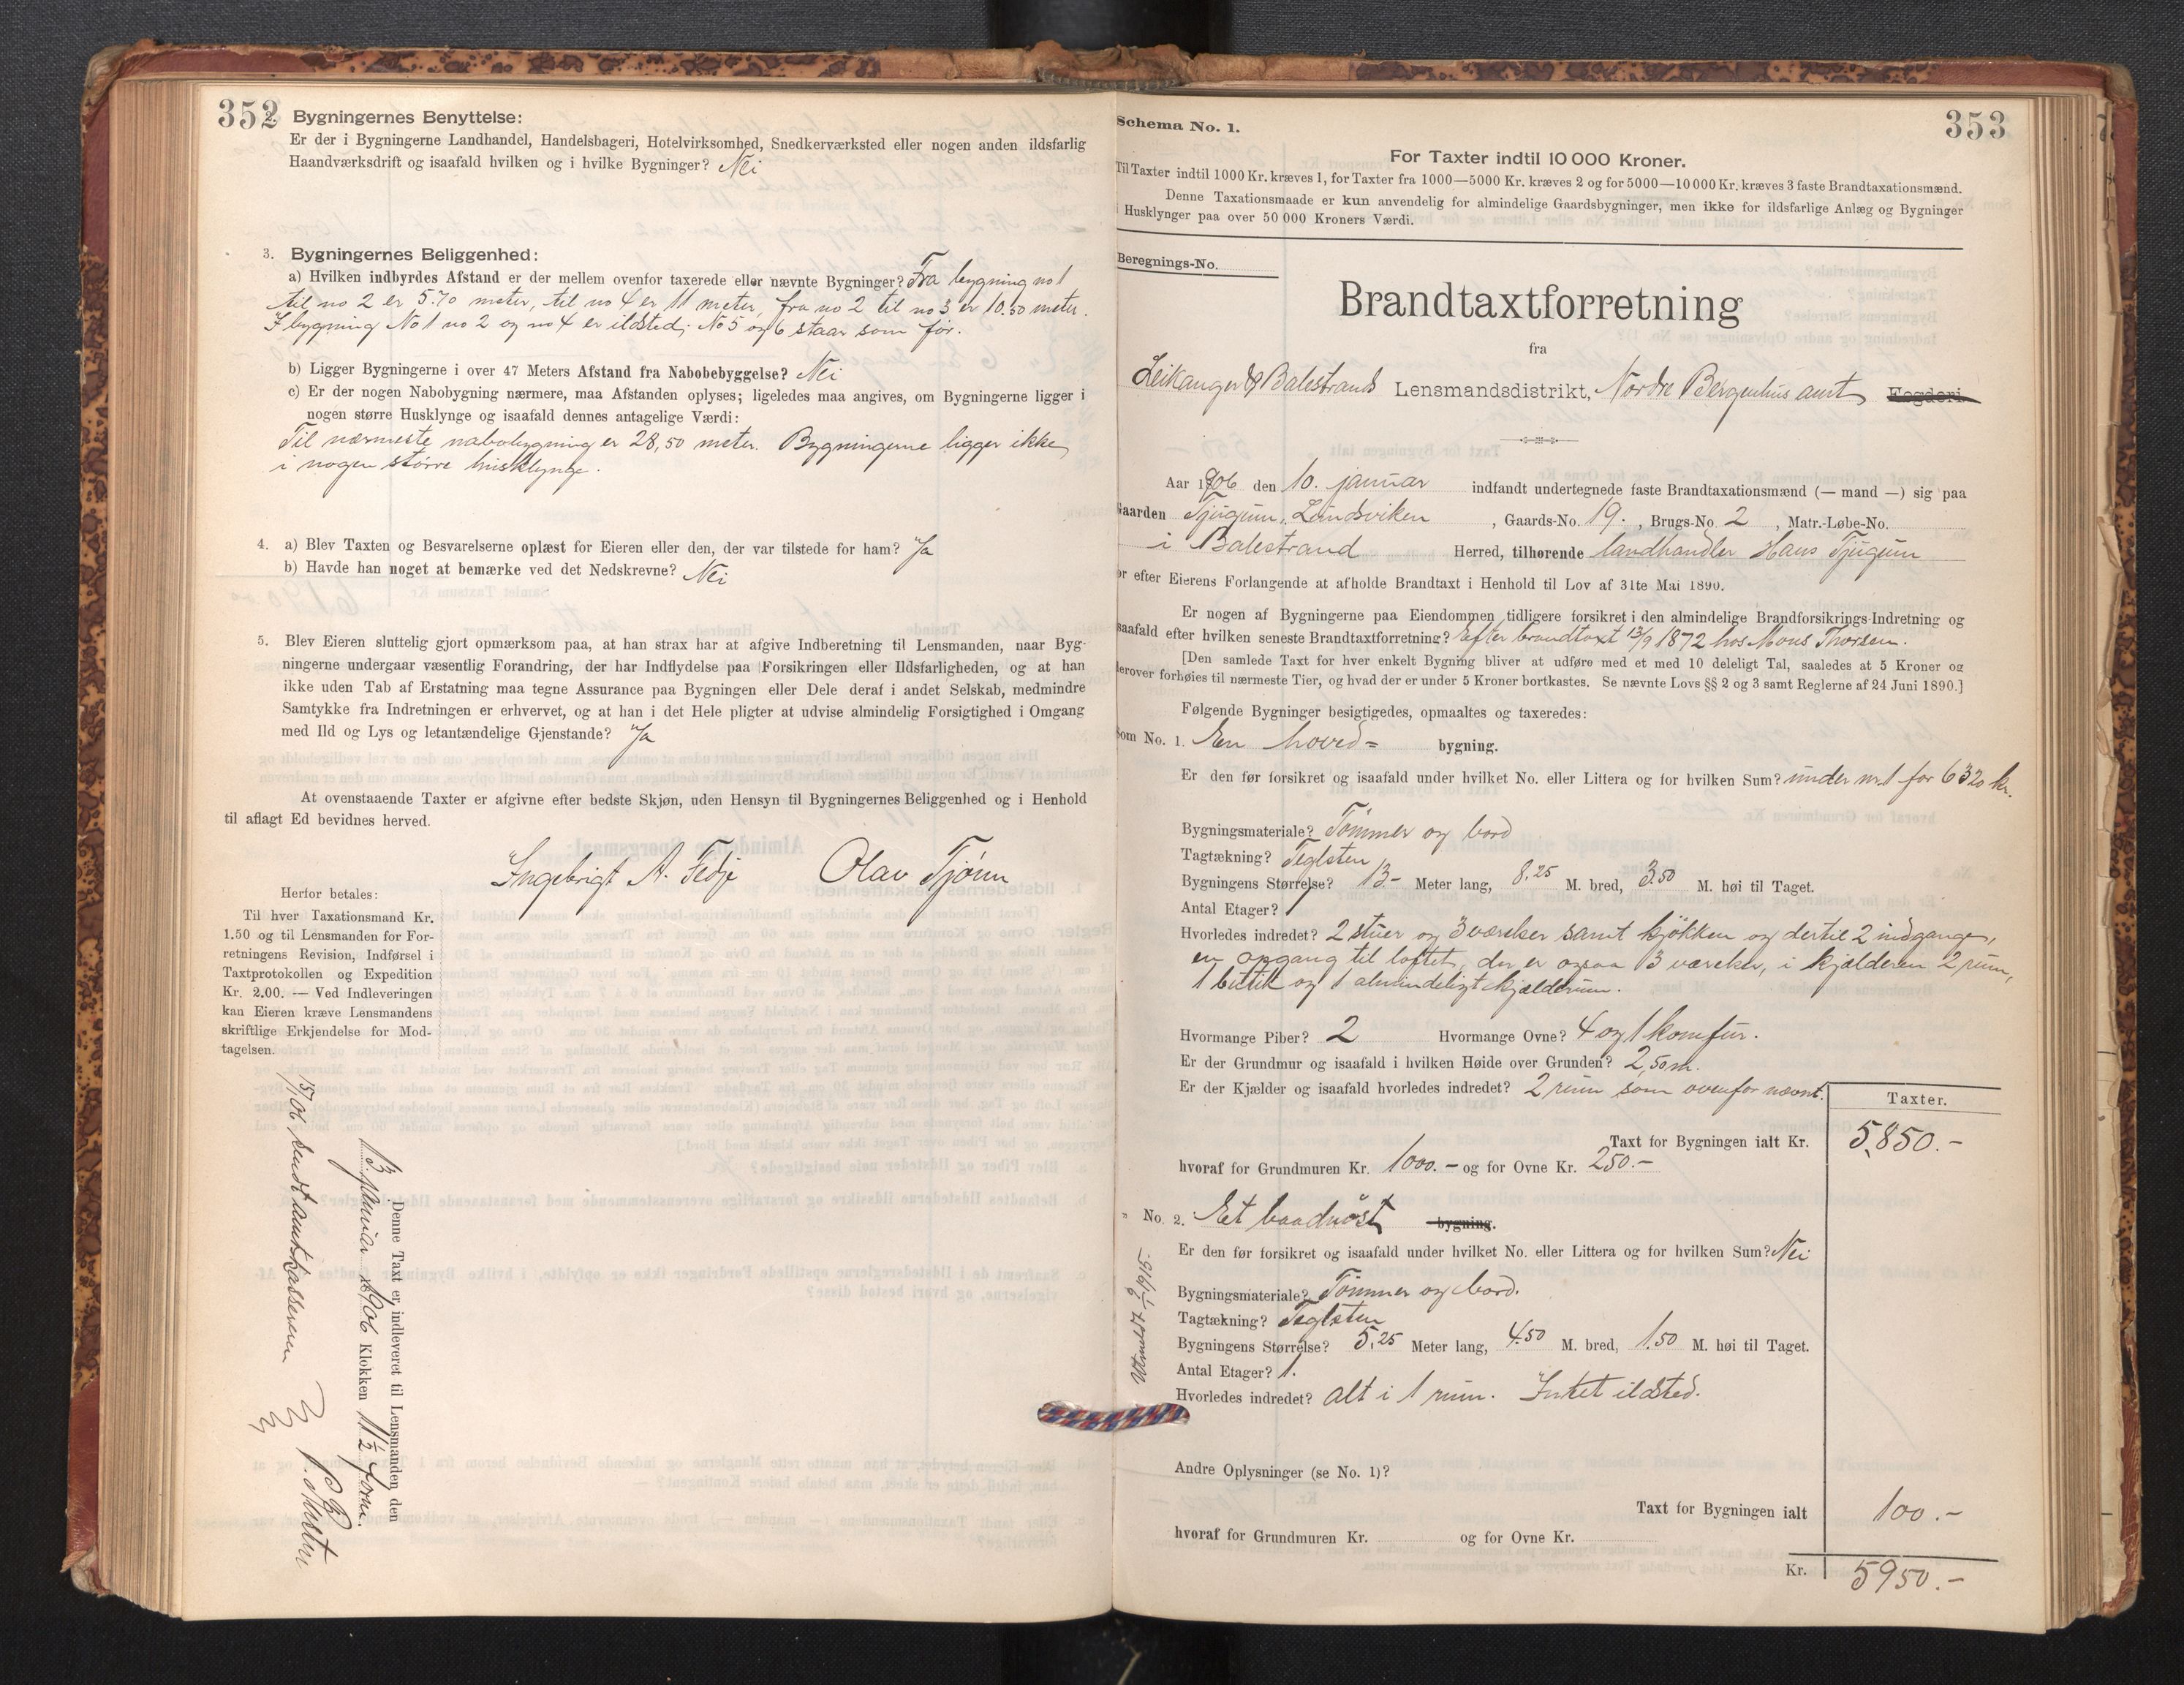 352
2. Bygningernes Benyttelse:
Er der i Bygningerne Landhandel, Handelsbageri, Hotelvirksomhed, Snedkerværksted eller nogen anden ildsfarlig
Haandværksdrift og isaafald hvilken og i hvilke Bygninger? Nei
3. Bygningernes Beliggenhed:
a) Hvilken indbyrdes Afstand er der mellem ovenfor taxerede eller nævnte Bygninger? Fra bygning no 1
til no 2 er 5.70 meter, til no 4 er 11 meter, fra no 2 til no 3 er 10.50 meter.
I bygning No 1 no 2 og no 4 er ildsted; No 5 og 6 staar som før.
b) Ligger Bygningerne i over 47 Meters Afstand fra Nabobebyggelse? Nei
c) Er der nogen Nabobygning nærmere, maa Afstanden oplyses; ligeledes maa angives, om Bygningerne ligger i
nogen større Husklynge og isaafald dennes antagelige Værdi:
Til nærmeste nabobygning er 28,50 meter. Bygningerne ligger ikke
i nogen större husklynge.
4. a) Blev Taxten og Besvarelserne oplæst for Eieren eller den, der var tilstede for ham? Ja
b) Havde han noget at bemærke ved det Nedskrevne? Nei
5. Blev Eieren sluttelig gjort opmærksom paa, at han strax har at afgive Indberetning til Lensmanden, naar Byg-
ningerne undergaar væsentlig Forandring, der har Indflydelse paa Forsikringen eller Ildsfarligheden, og at han
ikke uden Tab af Erstatning maa tegne Assurance paa Bygningen eller Dele deraf i andet Selskab, medmindre
Samtykke fra Indretningen er erhvervet, og at han i det Hele pligter at udvise almindelig Forsigtighed i Omgang
med Ild og Lys og letantændelige Gjenstande? Ja
At ovenstaaende Taxter er afgivne efter bedste Skjøn, uden Hensyn til Bygningernes Beliggenhed og i Henhold
til aflagt Ed bevidnes herved.
Ingebrigt A. Fedje Olav Tjönn
Herfor betales:
Til hver Taxationsmand Kr.
1.50 og til Lensmanden for For-
retningens Revision, Indførsel i
Taxtprotokollen og Expedition
Kr. 2.00. — Ved Indleveringen
kan Eieren kræve Lensmandens
skriftlige Erkjendelse for Mod-
tagelsen.
Denne Taxt er indleveret til Lensmanden den
13 januar 1906 Klokken 11½ form.
sendt amtskasseren
353
Schema No. 1.
For Taxter indtil 10 000 Kroner.
Til Taxter indtil 1000 Kr. kræves 1, for Taxter fra 1000—5000 Kr. kræves 2 og for 5000—10 000 Kr. kræves 3 faste Brandtaxationsmænd.
Denne Taxationsmaade er kun anvendelig for almindelige Gaardsbygninger, men ikke for ildsfarlige Anlæg og Bygninger
i Husklynger paa over 50 000 Kroners Værdi.
Beregnings-No.
Brandtaxtforretning
fra
Leikanger & Balestrand Lensmandsdistrikt, Nordre Bergenhus amt Fogderi
Aar 1906 den 10. januar indfandt undertegnede faste Brandtaxationsmænd (— mand —) sig paa
Gaarden Tjugum, Landsviken, Gaards-No. 19., Brugs-No. 2, Matr.-Løbe-No.
i Balestrand Herred, tilhørende landhandler Hans Tjugum
for efter Eierens Forlangende at afholde Brandtaxt i Henhold til Lov af 31te Mai 1890.
Er nogen af Bygningerne paa Eiendommen tidligere forsikret i den almindelige Brandforsikrings-Indretning og
isaafald efter hvilken seneste Brandtaxtforretning? efter brandtaxt 13/9 1872 hos Mons Thorsen.
[Den samlede Taxt for hver enkelt Bygning bliver at udføre med et med 10 deleligt Tal, saaledes at 5 Kroner og
derover forhøies til nærmeste Tier, og hvad der er under 5 Kroner bortkastes. Se nævnte Lovs §§ 2 og 3 samt Reglerne af 24 Juni 1890.]
Følgende Bygninger besigtigedes, opmaaltes og taxeredes:
Som No. 1. En hoved= bygning.
Er den før forsikret og isaafald under hvilket No. eller Littera og for hvilken Sum? under nr 1 for 6320 kr.
Bygningsmateriale? Tömmer og bord
Tagtækning? Teglsten
Bygningens Størrelse? 13- Meter lang, 8.25 M. bred, 3.50 M. høi til Taget.
Antal Etager? 1
Hvorledes indredet? 2 stuer og 3 værelser samt kjökken og dertil 2 indgange,
en opgang til loftet, der er ogsaa 3 værelser, i kjælderen 2 rum,
1 butik og 1 almindeligt kjælderrum.
Hvormange Piber? 2 Hvormange Ovne? 4 og 1 komfur.
Er der Grundmur og isaafald i hvilken Høide over Grunden? 2,50 m.
Er der Kjælder og isaafald hvorledes indredet? 2 rum som ovenfor nævnt.
Taxter.
Taxt for Bygningen ialt Kr. 5,850.-
hvoraf for Grundmuren Kr. 1000.- og for Ovne Kr. 250.-
" No. 2. Et baadnöst bygning.
Er den før forsikret og isaafald under hvilket No. eller Littera og for hvilken Sum? Nei
Bygningsmateriale? Tömmer og bord.
Tagtækning? Teglsten
Bygningens Størrelse? 5,25 Meter lang, 4.50 M. bred, 1.50 M. høi til Taget.
Antal Etager? 1.
Hvorledes indredet? alt i 1 rum. Intet ildsted.
Andre Oplysninger (se No. 1)?
Taxt for Bygningen ialt 100.-
hvoraf for Grundmuren Kr. og for Ovne Kr.
Kr. 5950.-